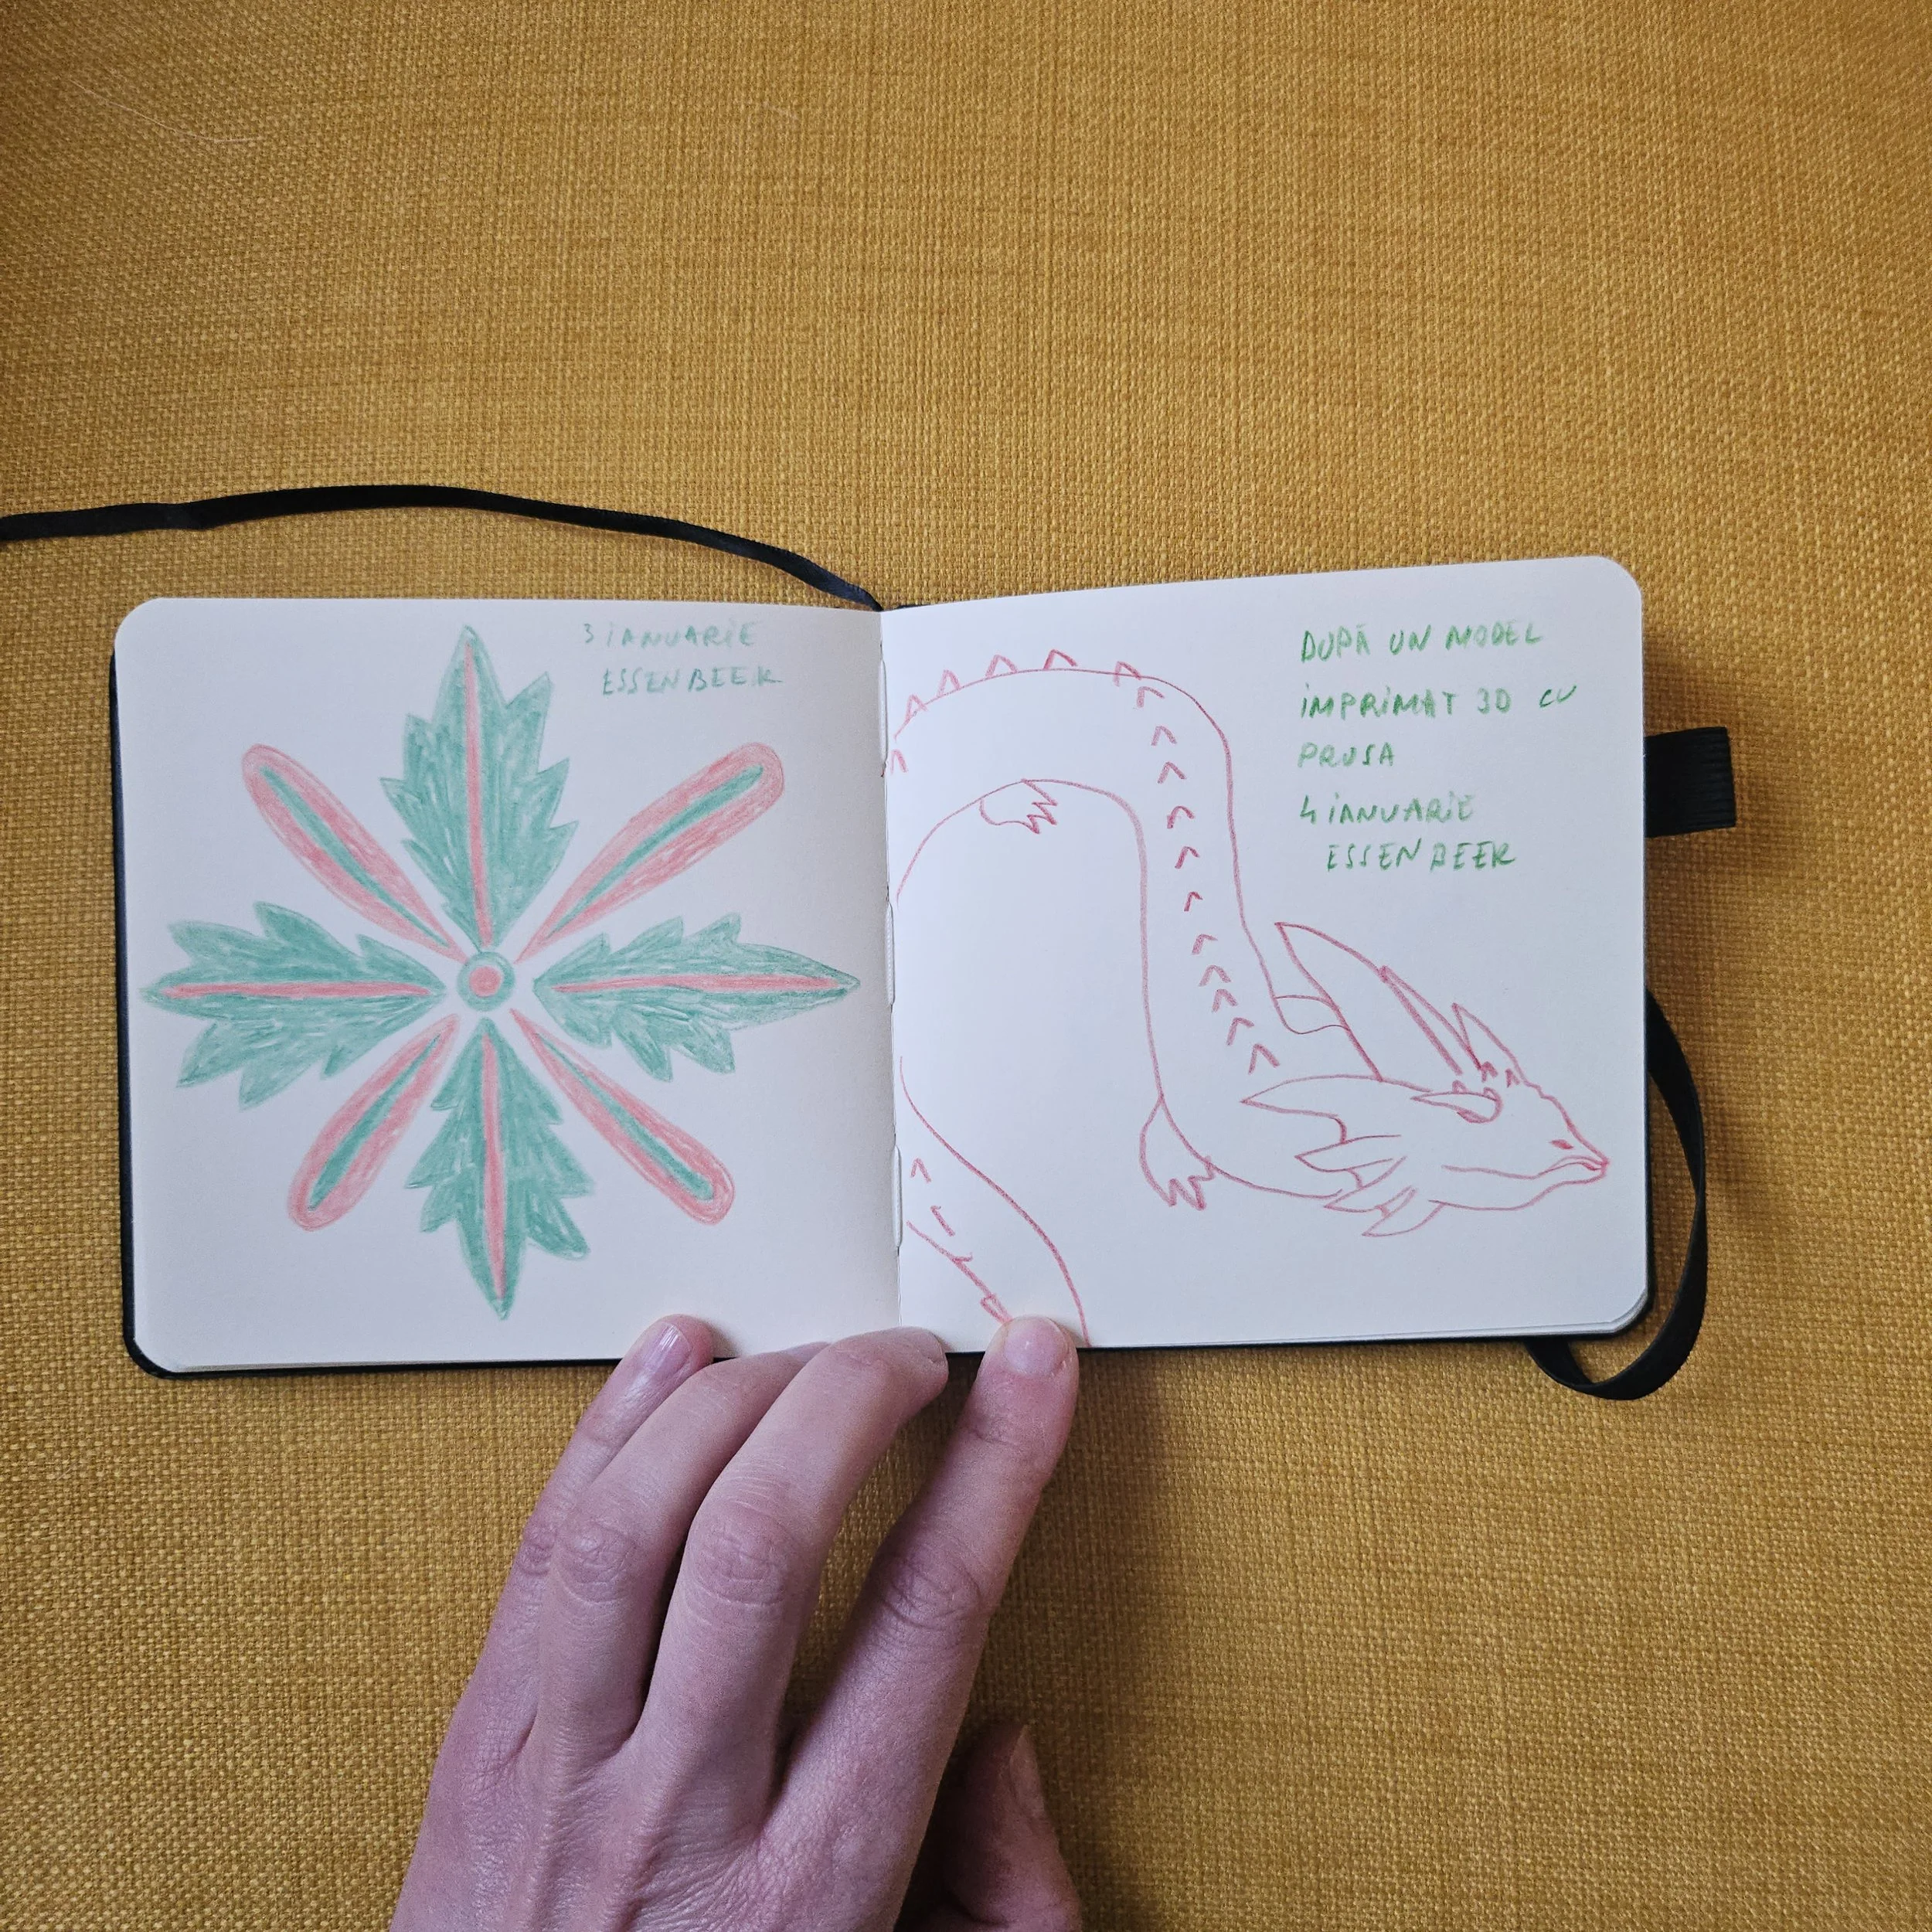 3 IANUARIE
ESSENBEEK
DUPĂ UN MODEL
IMPRIMAT 3D CU
PRUSA
4 IANUARIE
ESSENBEEK